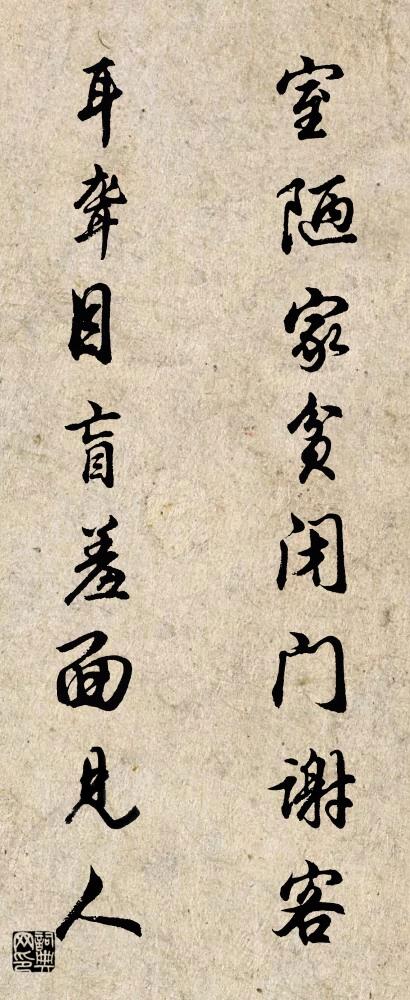 室陋家贫闭门谢客
耳聋目盲羞面见人
詞典网印